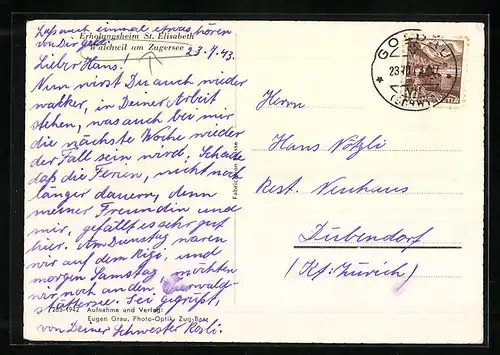 Laß auch einmal etwas hören
von Dir gell!
Erholungsheim St. Elisabeth
Walchwil am Zugersee
23.7.43.
Lieber Hans!
Nun wirst Du auch wieder
walker, in Deiner Arbeit
stehen, was auch bei mir
die nächste Woche wieder
der Fall sein wird. Schade
daß die Ferien, nicht noch
länger dauern, denn
meiner Freundin und
mir, gefällt es sehr gut
hier. Am Dienstag waren
wir auf dem Rigi, und
morgen Samstag möchten
wir noch an den Vierwald-
stättersee. Sei gegrüßt,
von Deiner Schwester Rösli.
1942 Aufnahme und Verlag:
Eugen Grau, Photo-Optik, Zug-Baar
GOLDAU
(SCHWYZ)
Herrn
Hans Nötzli
Rest. Neuhaus
Dübendorf
(Kt. Zürich)